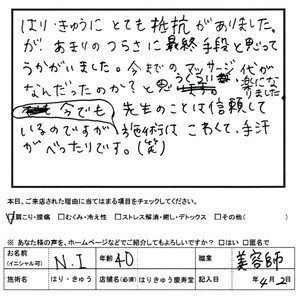 はり・きゅうに とても 抵抗 がありました。
が、あまりのつらさに最終手段と思って
うかがいました。今までのマッサージ代が
なんだったのか？と思うくらい楽になりました。
今でも 先生のことは信頼して
いるのですが 施術は こわくて、手汗
がべったりです。(笑)
本日、ご来店された理由に当てはまる項目をチェックしてください。
☑肩こり・腰痛 □むくみ・冷え性 □ストレス解消・癒し・デトックス □その他( )
※ あなた様の声を、ホームページなどでご紹介してもよろしいですか？ □はい □匿名で
お名前(イニシャル可) N.I 年齢 40 職業 美容師
施術名 はり・きゅう 店舗名(必須) はりきゅう慶寿堂 記入日 年4月2日